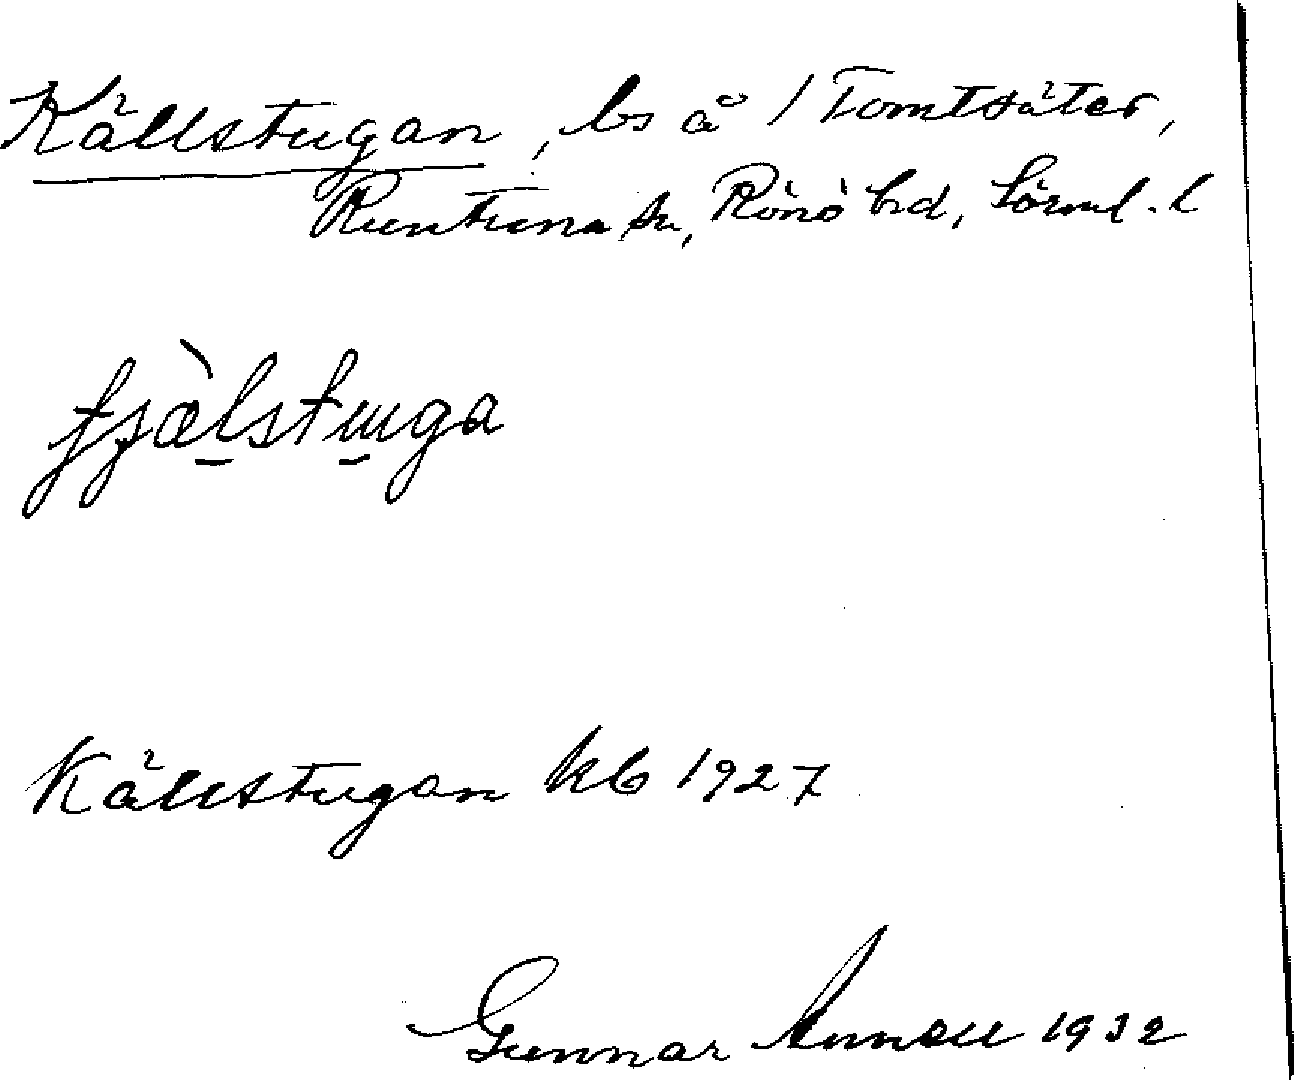 Källstugan, ls å 1 Tomtsäter,
Runtuna sn, Rönö hd, Sörml. l
Källstugan kb 1927
Gunnar Annell 1932